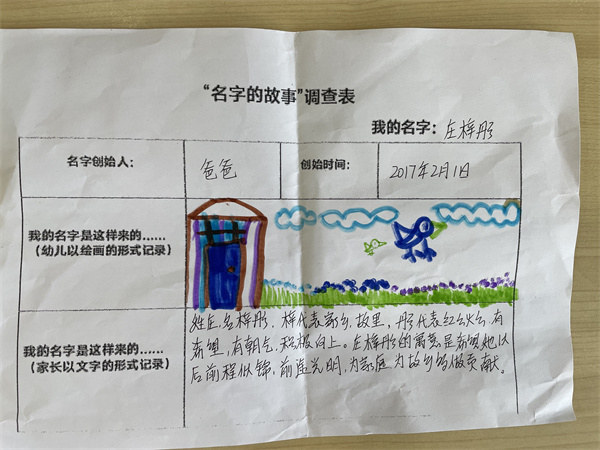 “名字的故事”调查表
我的名字：左梓彤
名字创始人： 爸爸 创始时间： 2017年2月1日
我的名字是这样来的……
（幼儿以绘画的形式记录）
我的名字是这样来的……
（家长以文字的形式记录）
姓左，名梓彤，梓代表家乡，故里，彤代表红红火火，有
希望，有朝气，积极向上。左梓彤的寓意是希望她以
后前程似锦，前途光明，为家庭为故乡多做贡献。